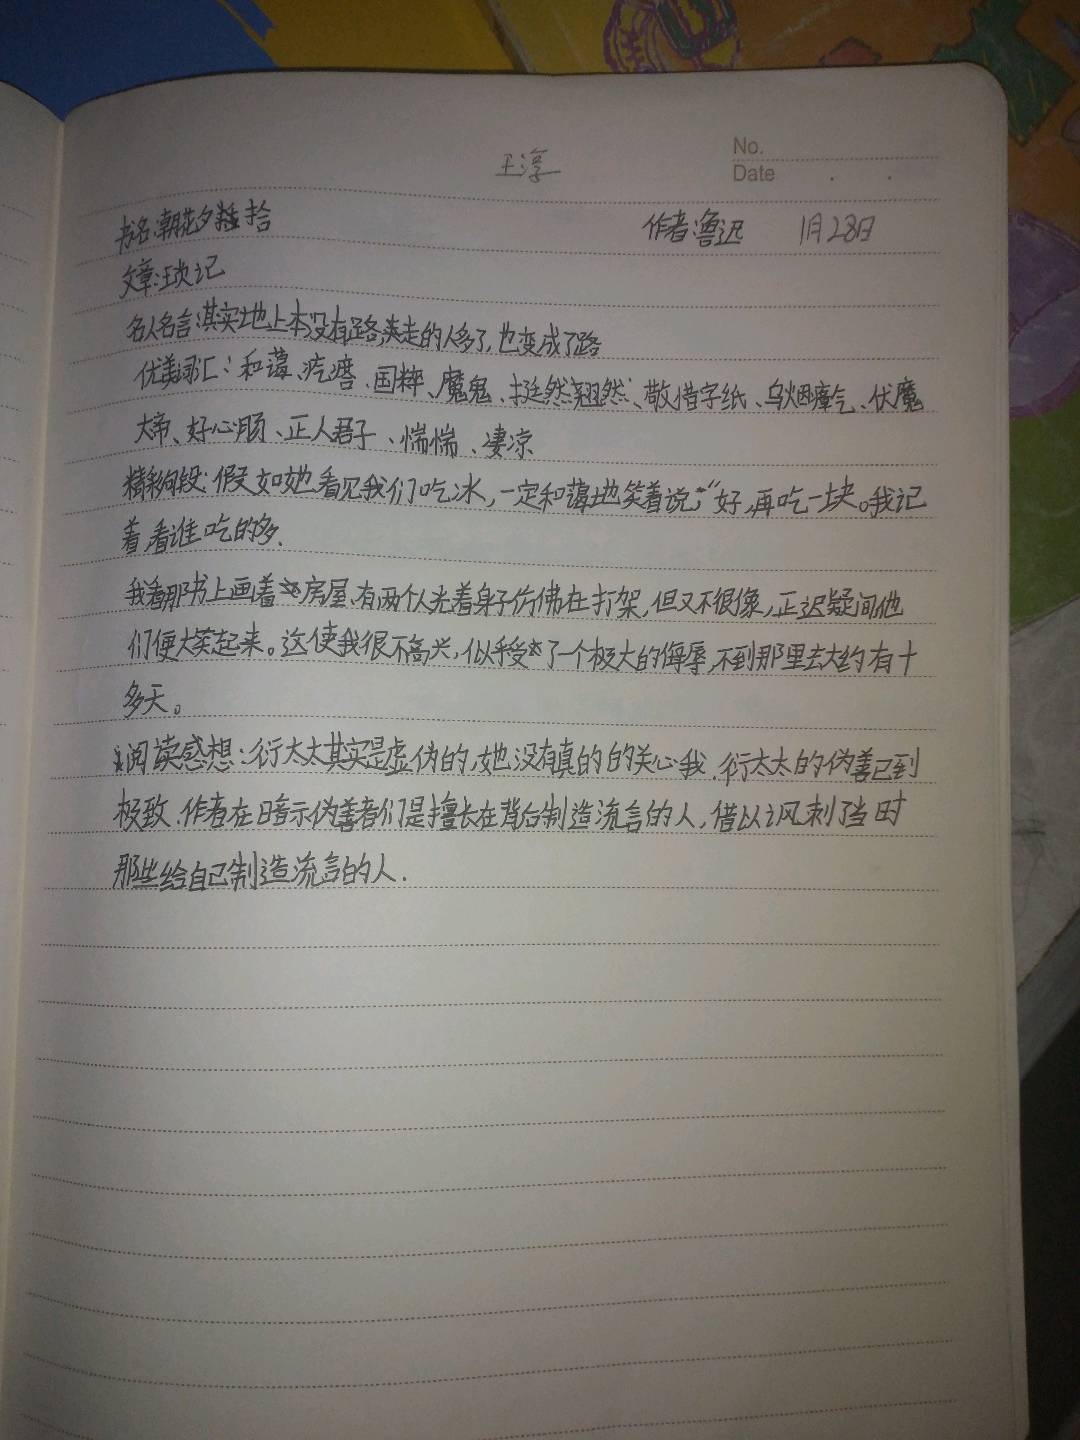 王淳
No.
Date
书名:朝花夕拾 作者:鲁迅 1月28日
文章:琐记
名人名言:其实地上本没有路,走的人多了,也变成了路
优美词汇:和蔼、疙瘩、国粹、魔鬼、挺然翘然、敬惜字纸、乌烟瘴气、伏魔
大帝、好心肠、正人君子、惴惴、凄凉
精彩句段:假如她看见我们吃冰,一定和蔼地笑着说:“好,再吃一块。我记
着,看谁吃的多.
我看那书上画着房屋,有两个人光着身子仿佛在打架,但又不很像,正迟疑间他
们便大笑起来。这使我很不高兴,似乎受了一个极大的侮辱,不到那里去大约有十
多天。
阅读感想:衍太太其实是虚伪的,她没有真的的关心我.衍太太的伪善已到
极致.作者在暗示伪善者们是擅长在背后制造流言的人,借以讽刺了当时
那些给自己制造流言的人.